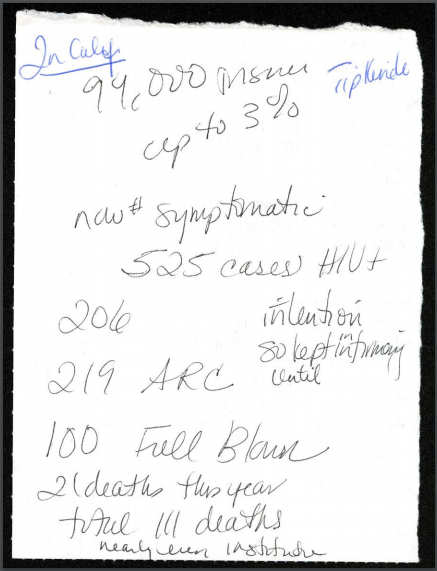 In Calif
Tip Kindel
94,000 prisoners
up to 3%
now # symptomatic
525 cases HIV+
206
intention
so kept in infirmary
until
219 ARC
100 Full Blown
21 deaths this year
total 111 deaths
nearly every institution